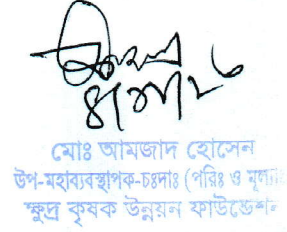 মোঃ আমজাদ হোসেন
উপ-মহাব্যবস্থাপক-চঃদাঃ (পরিঃ ও
ক্ষুদ্র কৃষক উন্নয়ন ফাউন্ডেশন